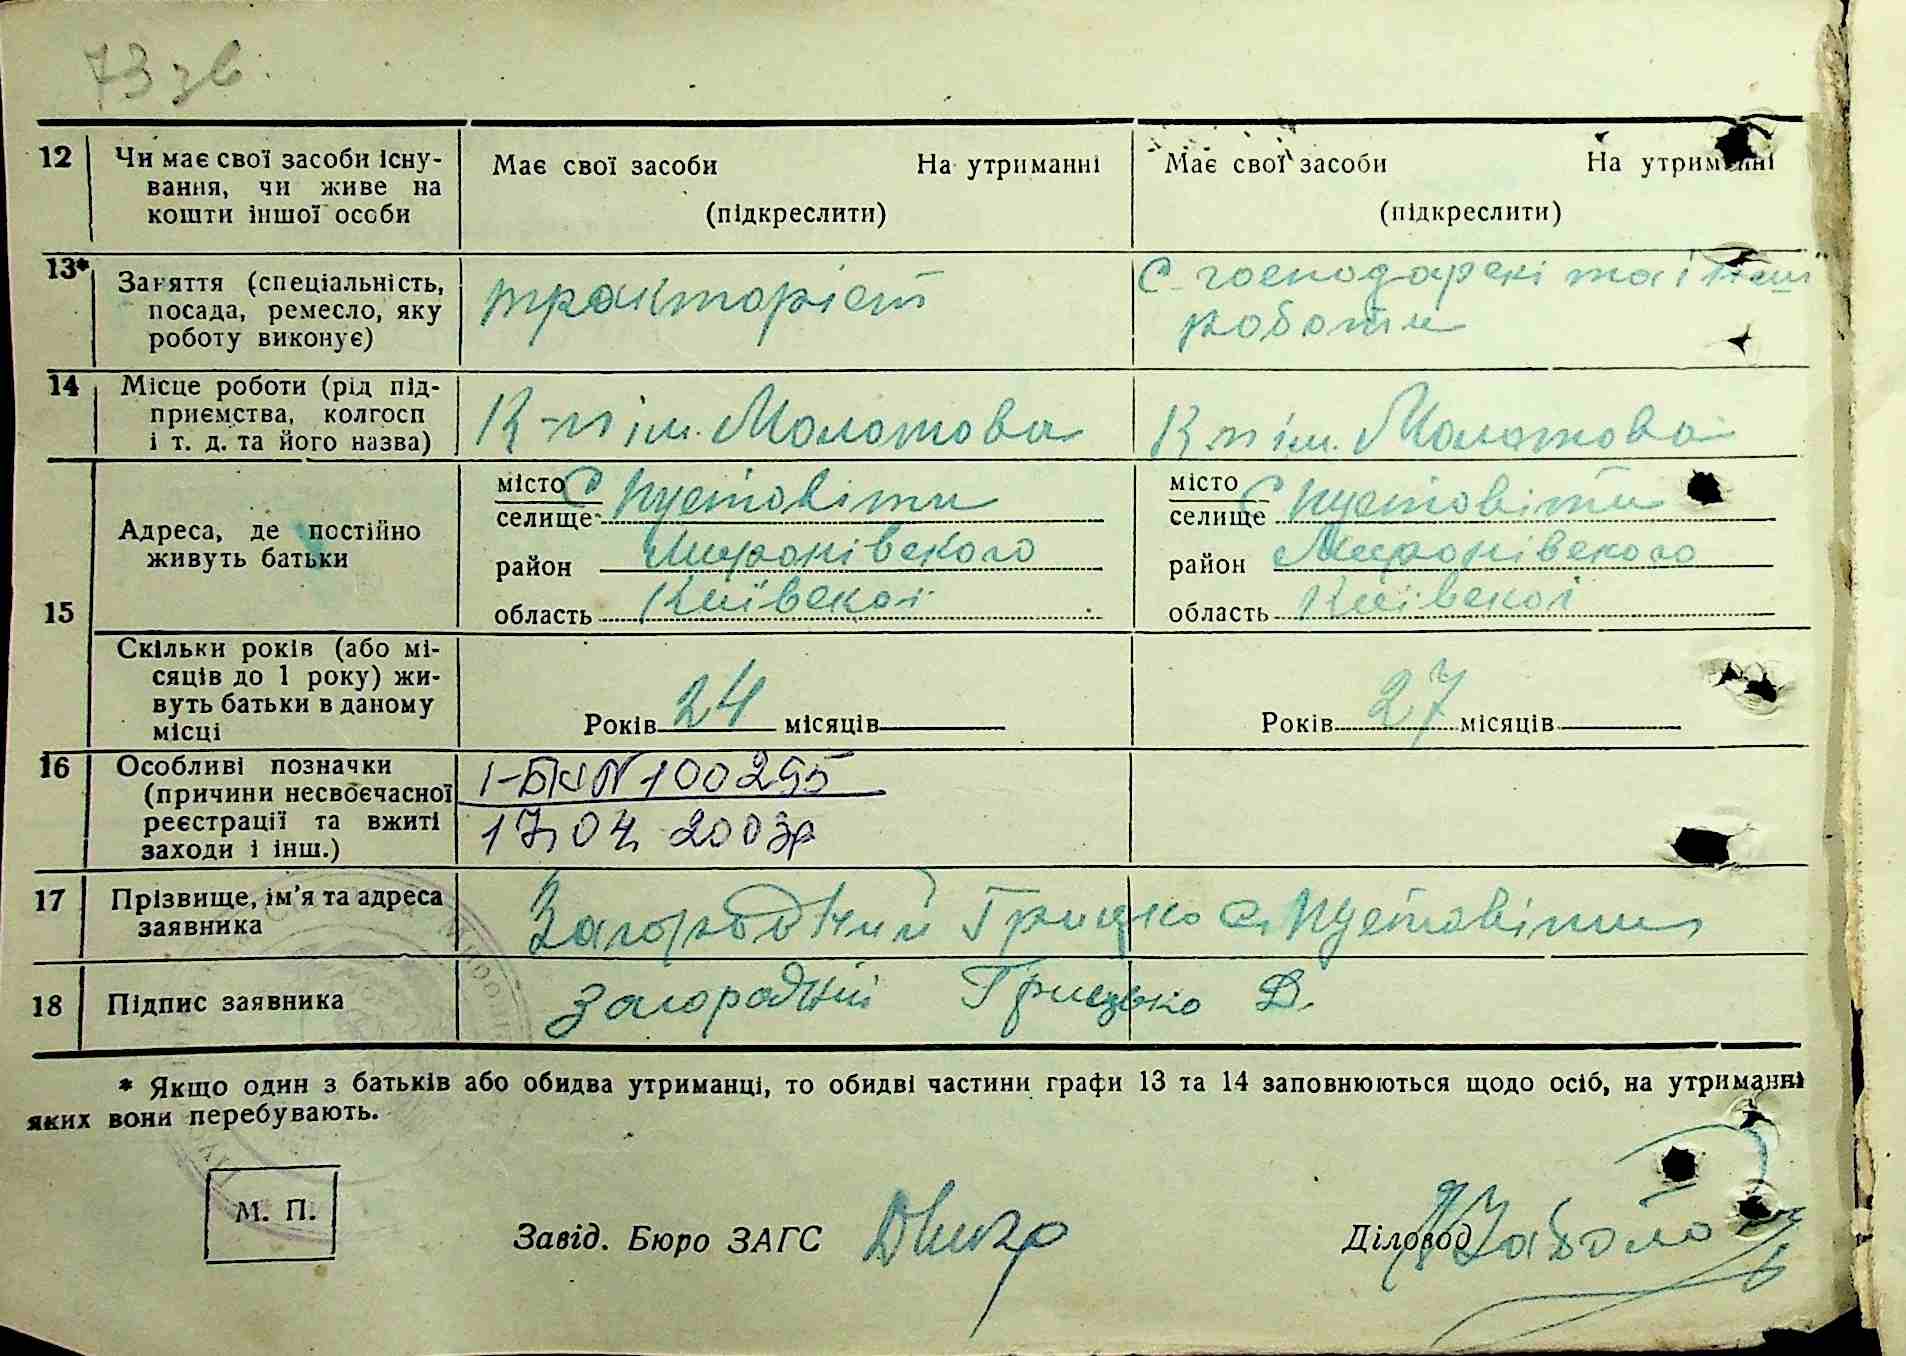 73 зв.
12 Чи має свої засоби існу- Має свої засоби На утриманні Має свої засоби На утриманні
вання, чи живе на
кошти іншої особи (підкреслити) (підкреслити)
13* Заняття (спеціальність, тракторіст С-господарскі та інш
посада, ремесло, яку роботи
роботу виконує)
14 Місце роботи (рід під- К-п ім. Молотова К-п ім. Молотова
приємства, колгосп
і т. д. та його назва)
15 Адреса, де постійно місто С Пустовіти місто С Пустовіти
живуть батьки селище селище
район Миронівского район Миронівского
область Київскої область Київскої
Скільки років (або мі-
сяців до 1 року) жи-
вуть батьки в даному
місці Років 24 місяців Років 27 місяців
16 Особливі позначки І-БК №100295
(причини несвоєчасної
реєстрації та вжиті 17.04.2003р
заходи і інш.)
17 Прізвище, ім'я та адреса Загородній Грицко с. Пустовіти
заявника
18 Підпис заявника Загородній Грицько Д.
* Якщо один з батьків або обидва утриманці, то обидві частини графи 13 та 14 заповнюються щодо осіб, на утриманні
яких вони перебувають.
М. П.
Завід. Бюро ЗАГС Діловод